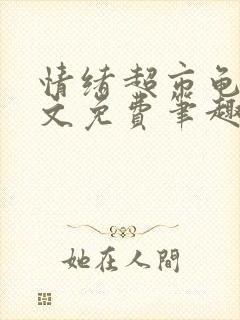 情绪超市龟
文免费笔趣
她在人間